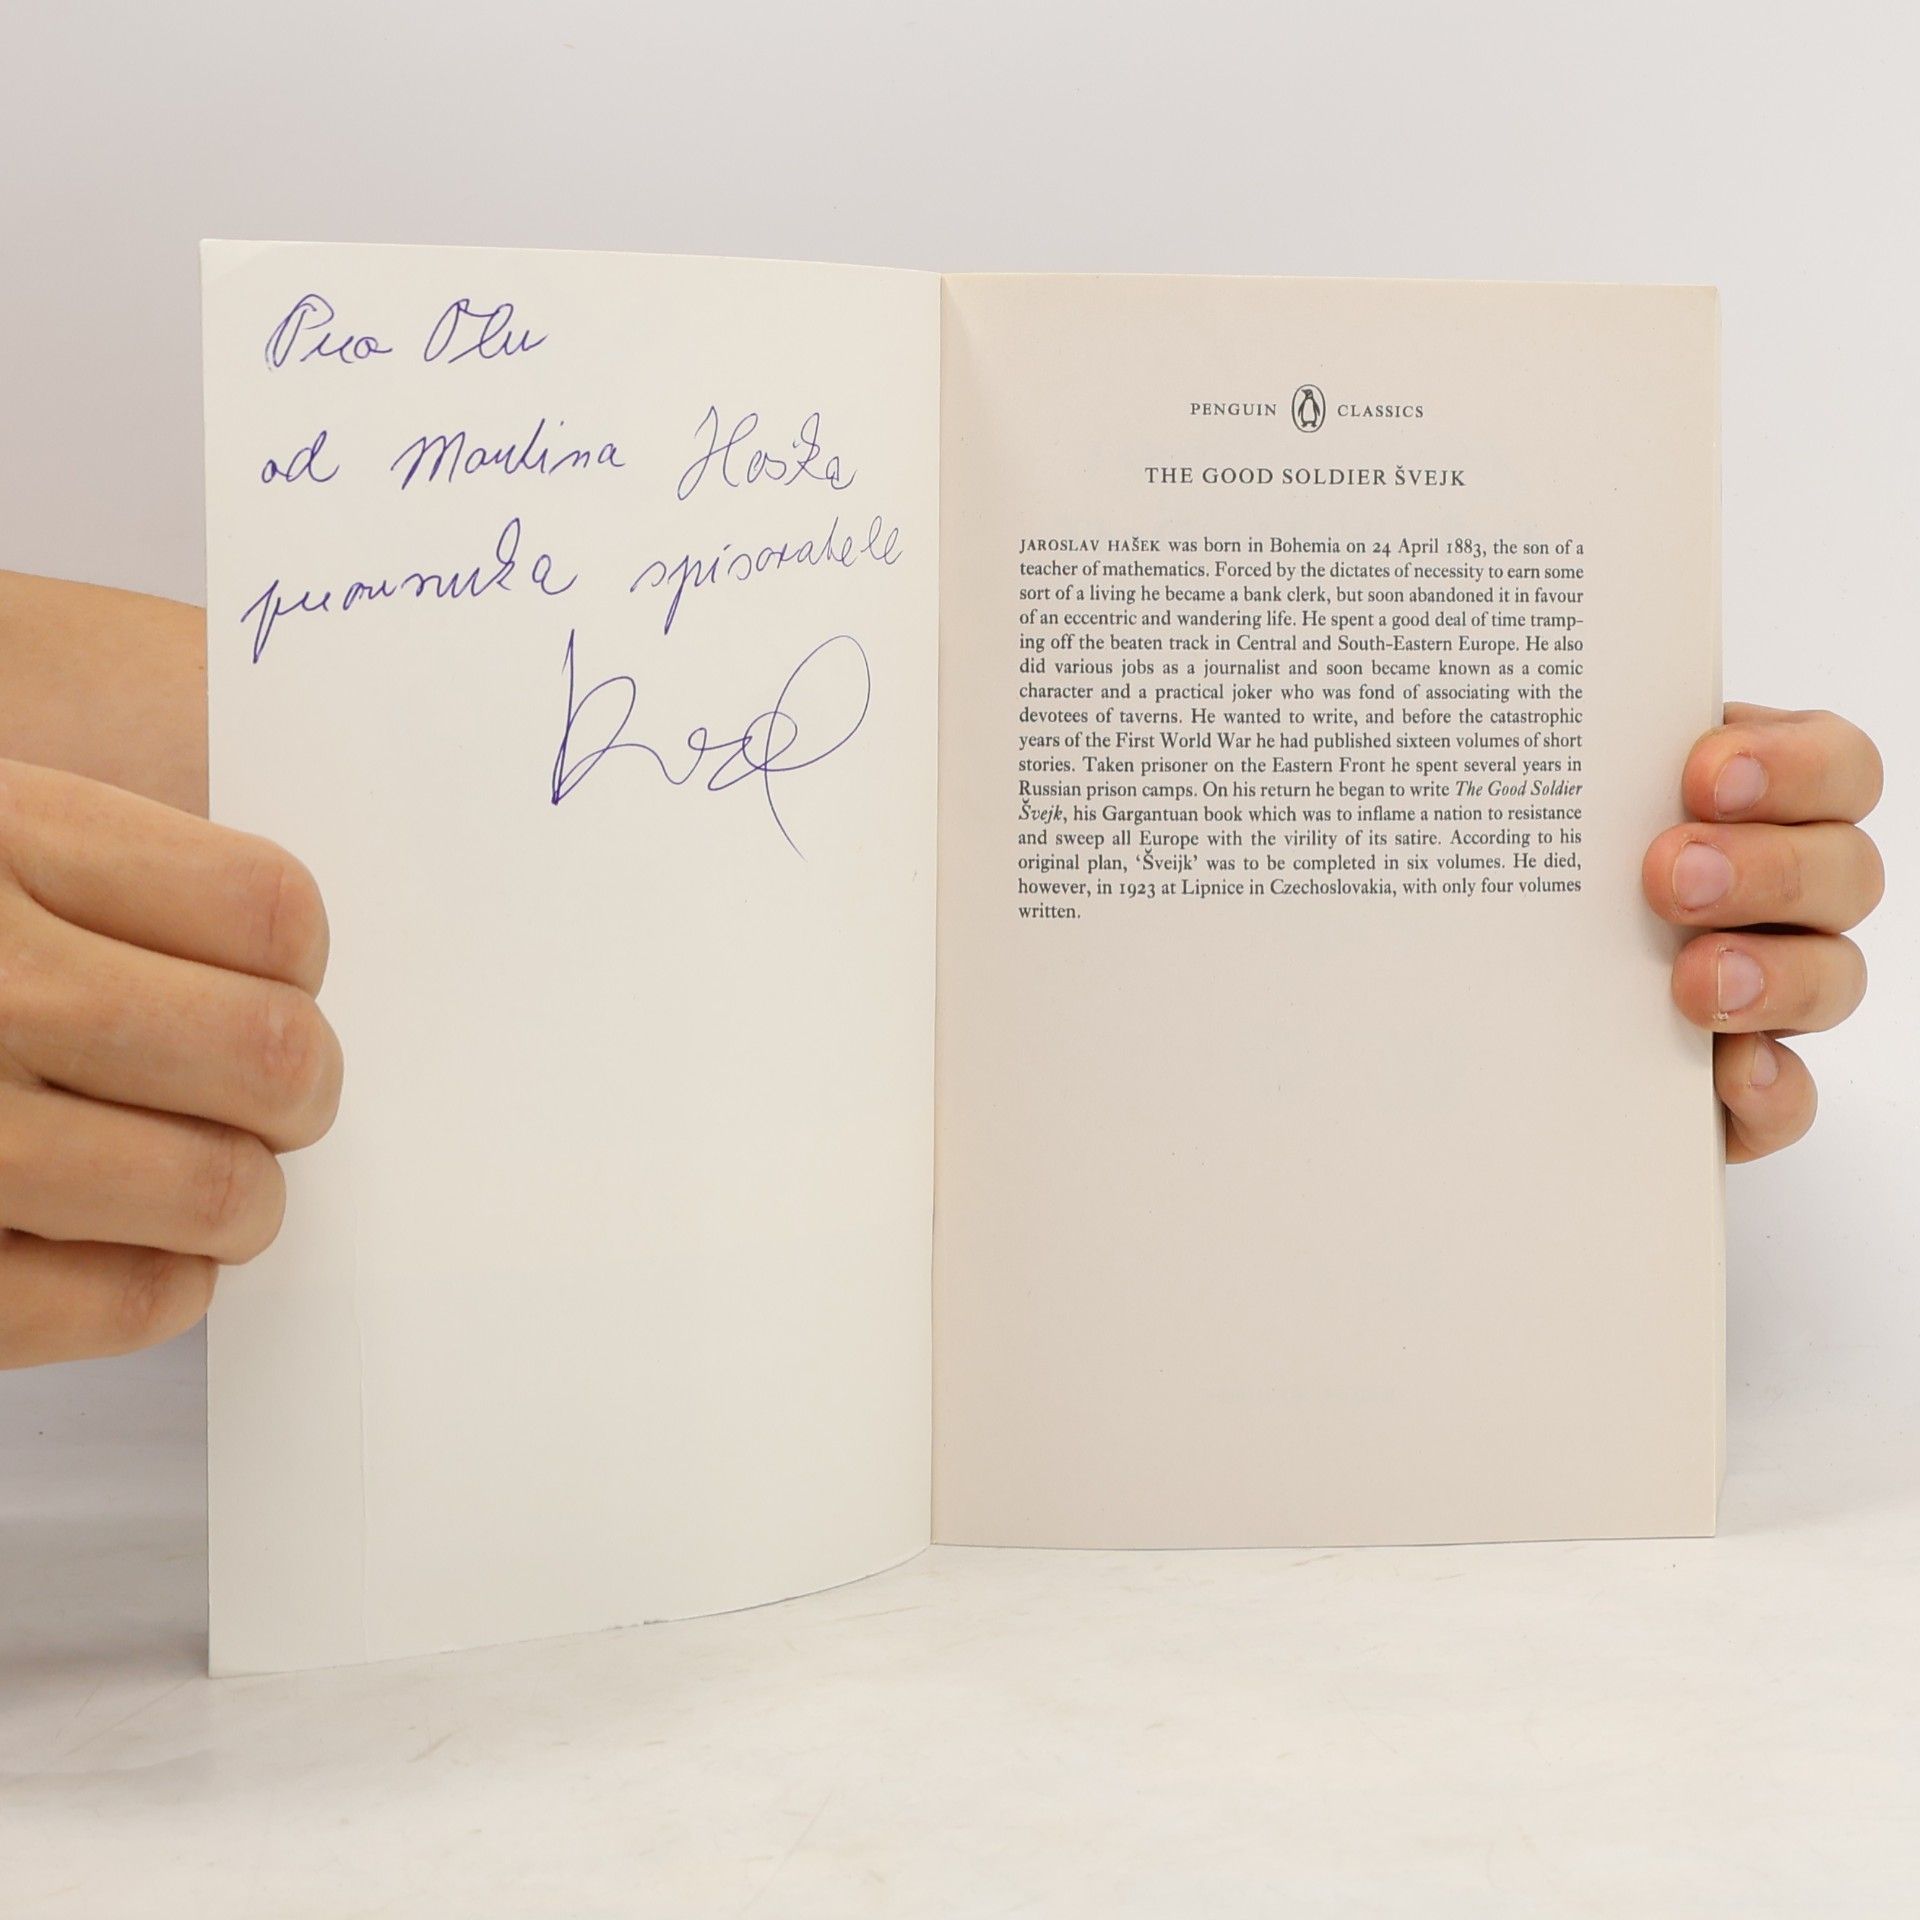 Pro Olu
od Martina Haška
pravnuka spisovatele
PENGUIN CLASSICS
THE GOOD SOLDIER ŠVEJK
JAROSLAV HAŠEK was born in Bohemia on 24 April 1883, the son of a
teacher of mathematics. Forced by the dictates of necessity to earn some
sort of a living he became a bank clerk, but soon abandoned it in favour
of an eccentric and wandering life. He spent a good deal of time tramp-
ing off the beaten track in Central and South-Eastern Europe. He also
did various jobs as a journalist and soon became known as a comic
character and a practical joker who was fond of associating with the
devotees of taverns. He wanted to write, and before the catastrophic
years of the First World War he had published sixteen volumes of short
stories. Taken prisoner on the Eastern Front he spent several years in
Russian prison camps. On his return he began to write The Good Soldier
Švejk, his Gargantuan book which was to inflame a nation to resistance
and sweep all Europe with the virility of its satire. According to his
original plan, ‘Šveijk’ was to be completed in six volumes. He died,
however, in 1923 at Lipnice in Czechoslovakia, with only four volumes
written.